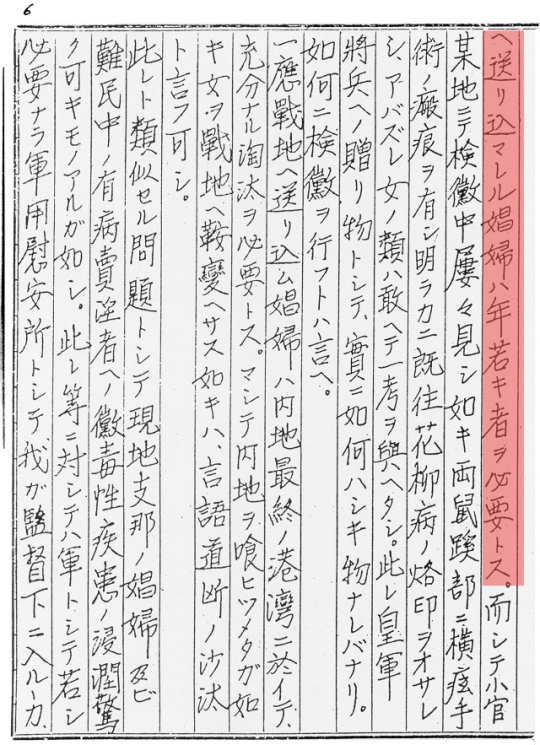 6
ヘ送リ込マレル娼婦ハ年若キ者ヲ必要トス。而シテ小官
某地ニテ検黴中屢々見シ如キ両鼠蹊部ニ横痃手
術ノ瘢痕ヲ有シ明ラカニ既往花柳病ノ烙印ヲオサレ
シ、アバズレ女ノ類ハ敢ヘテ一考ヲ與ヘタシ。此レ皇軍
將兵ヘノ贈リ物トシテ、實ニ如何ハシキ物ナレバナリ。
如何ニ検黴ヲ行フトハ言ヘ。
一應戰地ヘ送リ込ム娼婦ハ内地最終ノ港灣ニ於イテ、
充分ナル淘汰ヲ必要トス。マシテ内地ヲ喰ヒツメタガ如
キ女ヲ戰地ヘ鞍變ヘサス如キハ、言語道断ノ沙汰
ト言フ可シ。
此レト類ヘ似セル問題トシテ現地支那ノ娼婦及ビ
難民中ノ有病賣淫者ヘノ黴毒性疾患ノ浸潤驚
ク可キモノアルガ如シ。此レ等ニ対シテハ軍トシテ若シ
必要ナラ軍用慰安所トシテ、我ガ監督下ニ入ルヽカ、